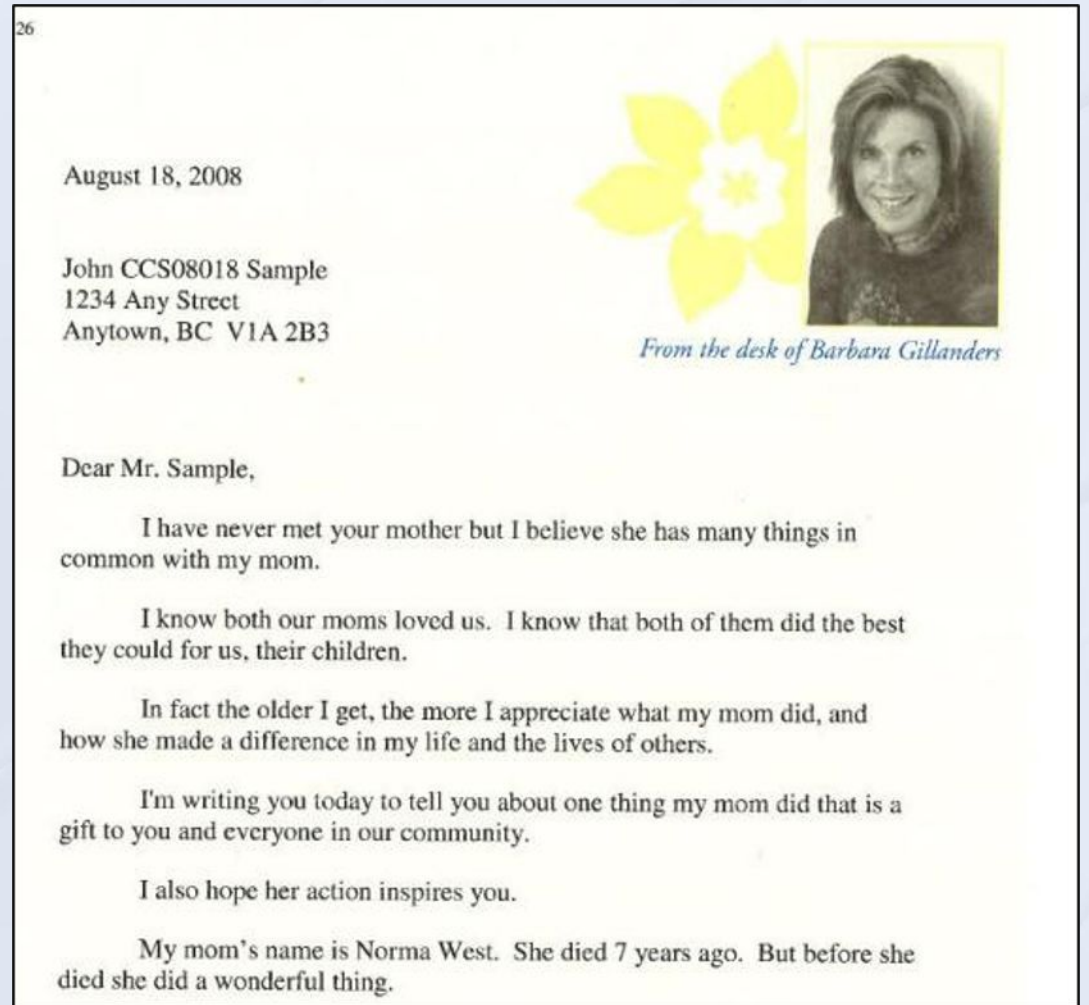 26
August 18, 2008
John CCS08018 Sample
1234 Any Street
Anytown, BC V1A 2B3
From the desk of Barbara Gillanders
Dear Mr. Sample,
I have never met your mother but I believe she has many things in
common with my mom.
I know both our moms loved us. I know that both of them did the best
they could for us, their children.
In fact the older I get, the more I appreciate what my mom did, and
how she made a difference in my life and the lives of others.
I'm writing you today to tell you about one thing my mom did that is a
gift to you and everyone in our community.
I also hope her action inspires you.
My mom's name is Norma West. She died 7 years ago. But before she
died she did a wonderful thing.